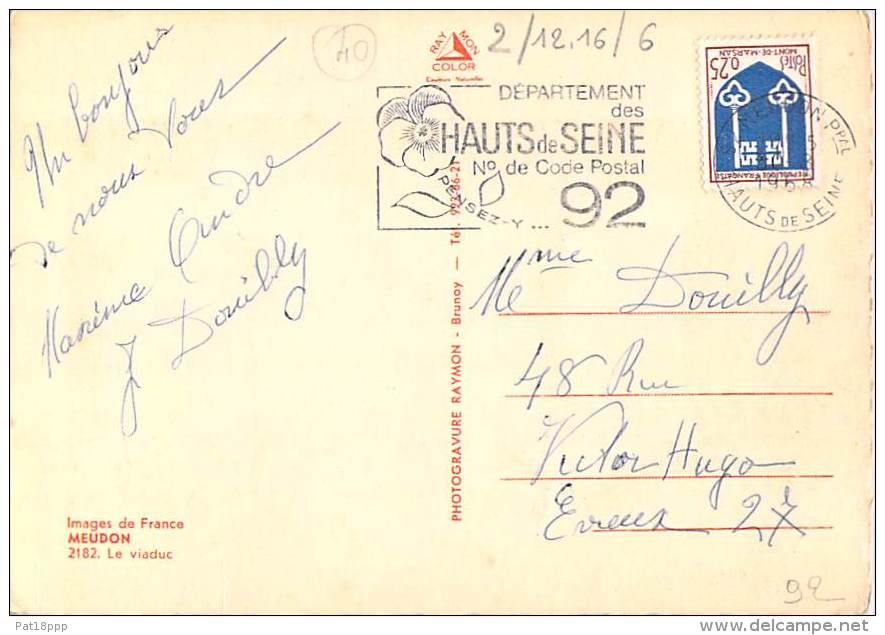 Un bonjour
de nous tous
Maxime Andre
J Douilly
Images de France
MEUDON
2182. Le viaduc
PHOTOGRAVURE RAYMON - Brunoy — Tél. 922-86-21
RAY MON
COLOR
Couleurs Naturelles
40
2/12.16/6
DÉPARTEMENT
des
HAUTS de SEINE
No de Code Postal
PENSEZ-Y... 92
0,25 Postes
MONT-DE-MARSAN
REPUBLIQUE FRANÇAISE
MEUDON Ppal
1968
HAUTS DE SEINE
Meme Douilly
48 Rue
Victor Hugo
Evreux 27
92
Pat18ppp
www.delcampe.net